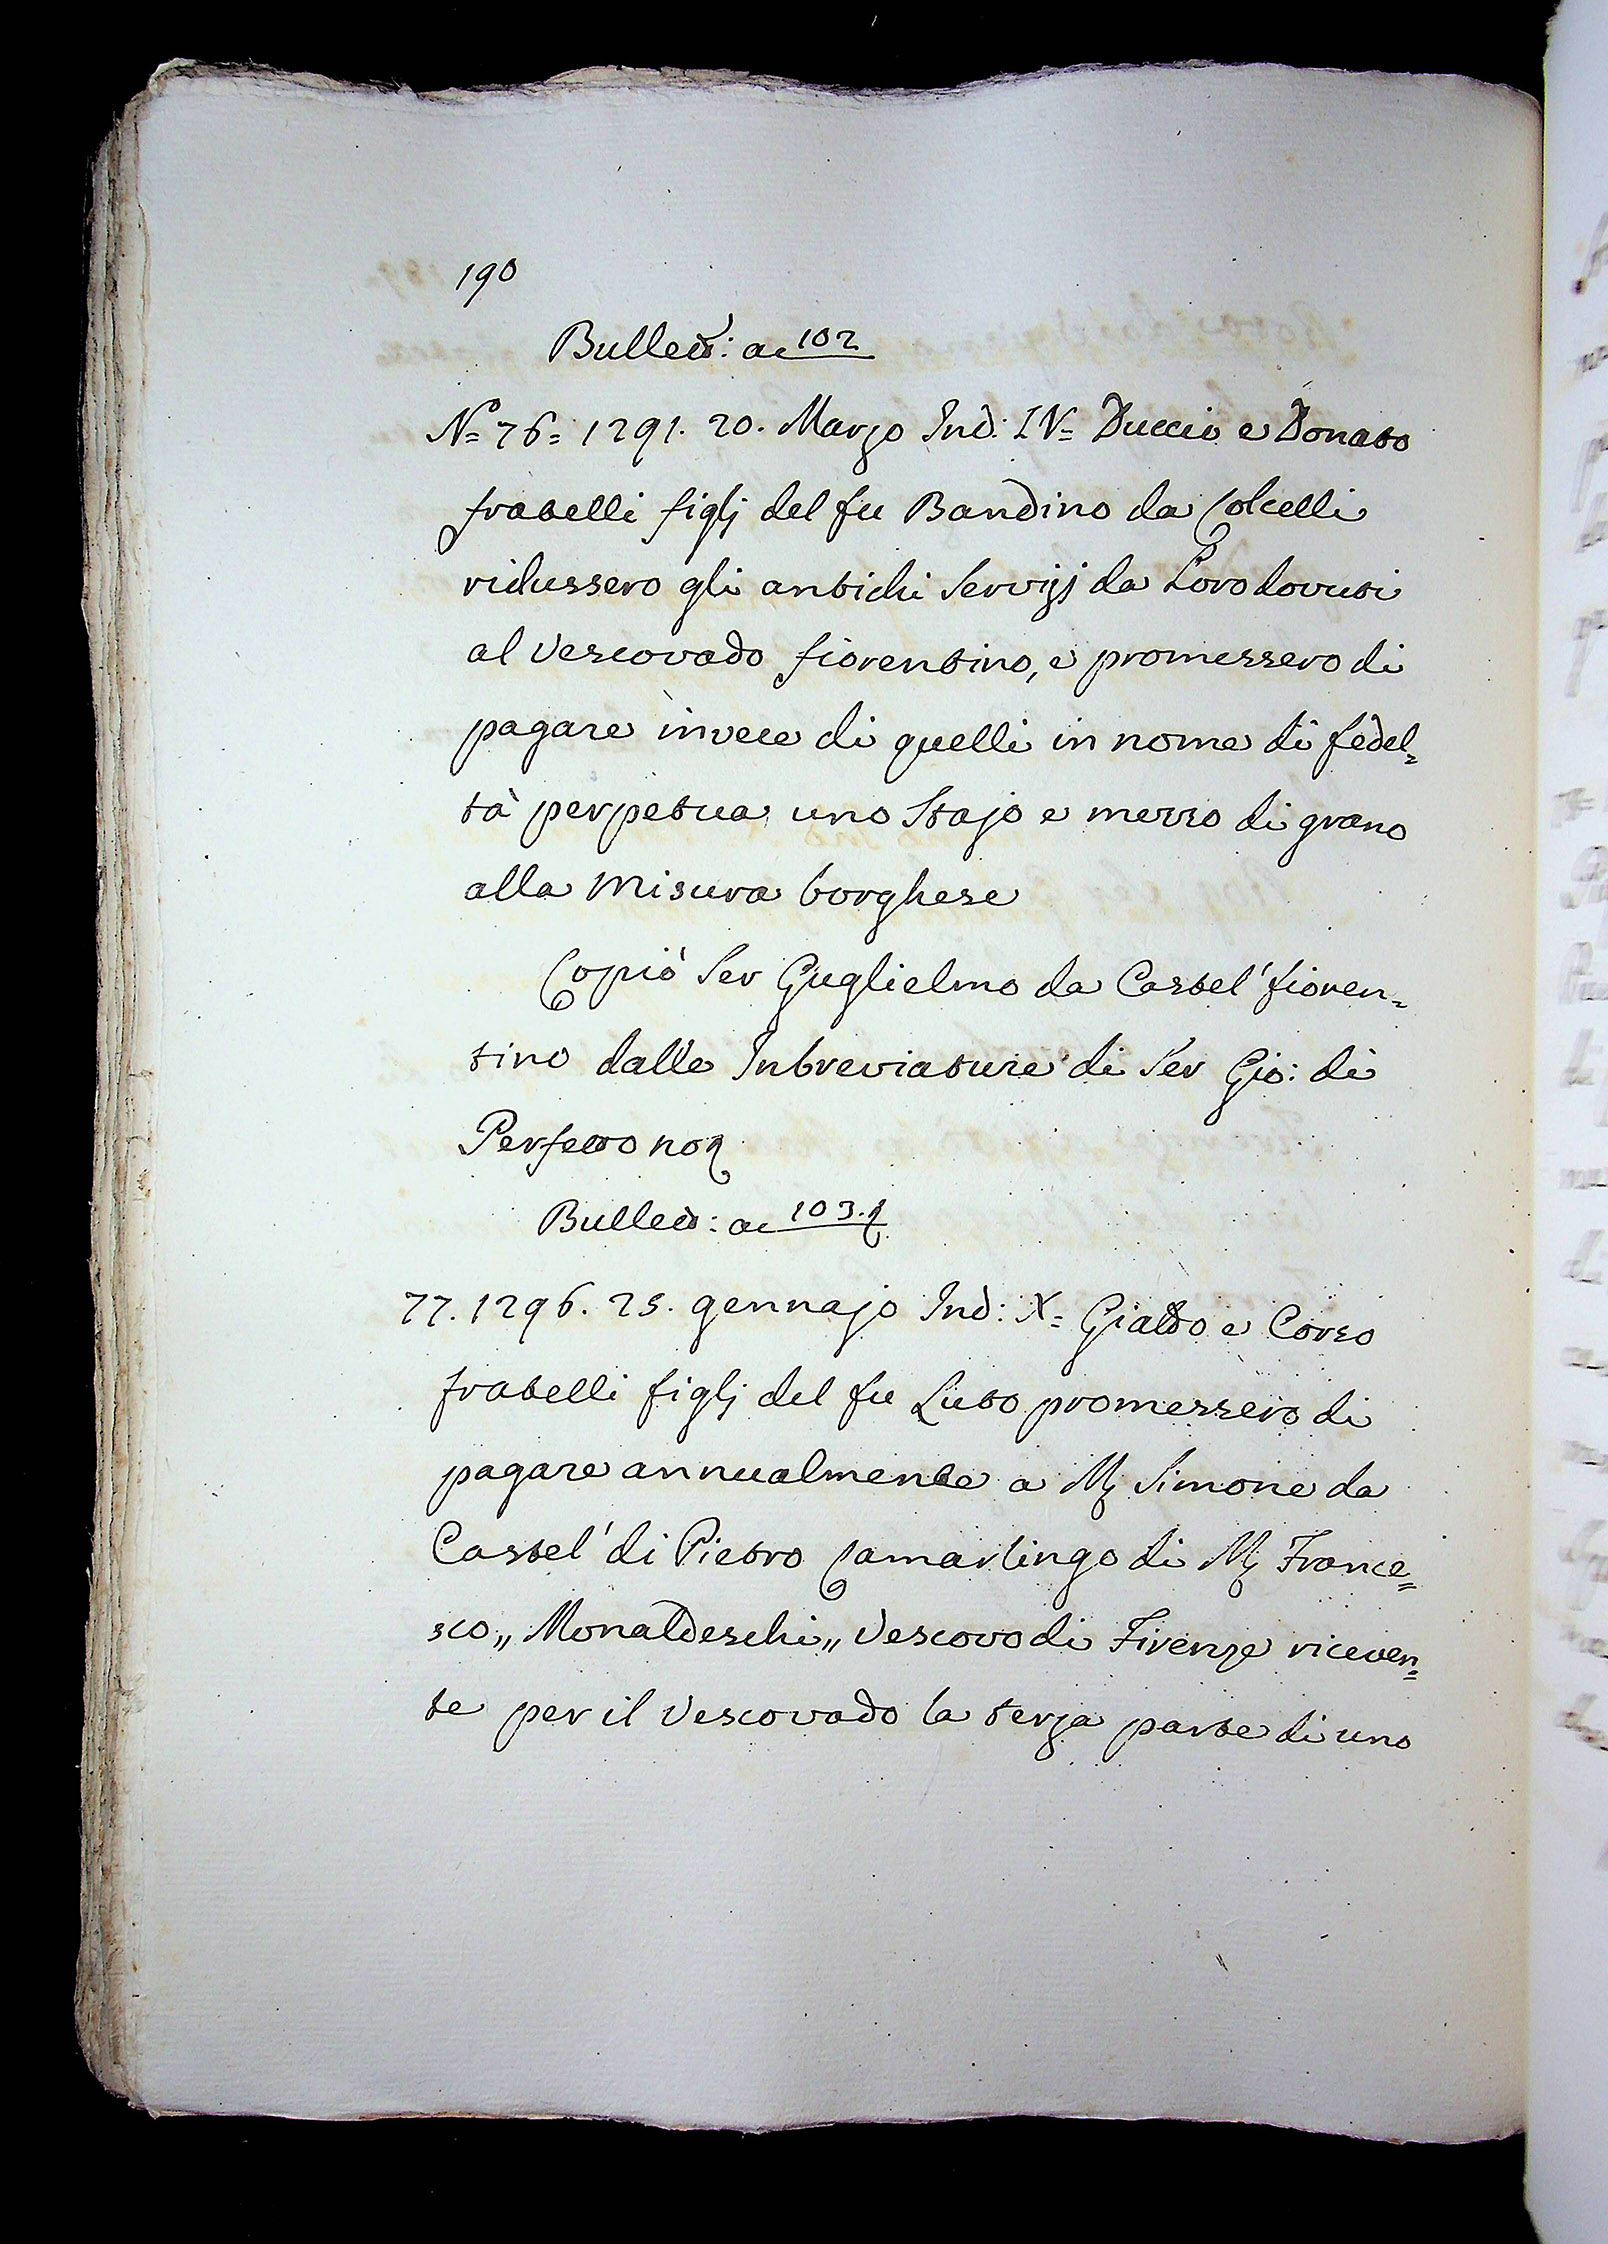 190
Bullett: a 102
N= 76= 1291. 20. Marzo Ind: IV= Duccio e Donato
fratelli figlj del fu Bandino da Colcelli
ridussero gli antichi Servizj da Loro dovuti
al Vescovado fiorentino, e promessero di
pagare invece di quelli in nome di fedel=
tà perpetua uno Stajo e mezzo di grano
alla Misura borghese
Copiò Ser Guglielmo da Castel' fioren=
tino dalle Inbreviature di Ser Gio: di
Perfetto no
Bullett: a 103.
77. 1296. 25. gennajo Ind: X= Gialdo e Corso
fratelli figlj del fu Luto promessero di
pagare annualmente a M Simone da
Castel' di Pietro Camarlingo di M France=
sco „ Monaldeschi „ Vescovo di Firenze riceven=
te per il Vescovado la terza parte di uno